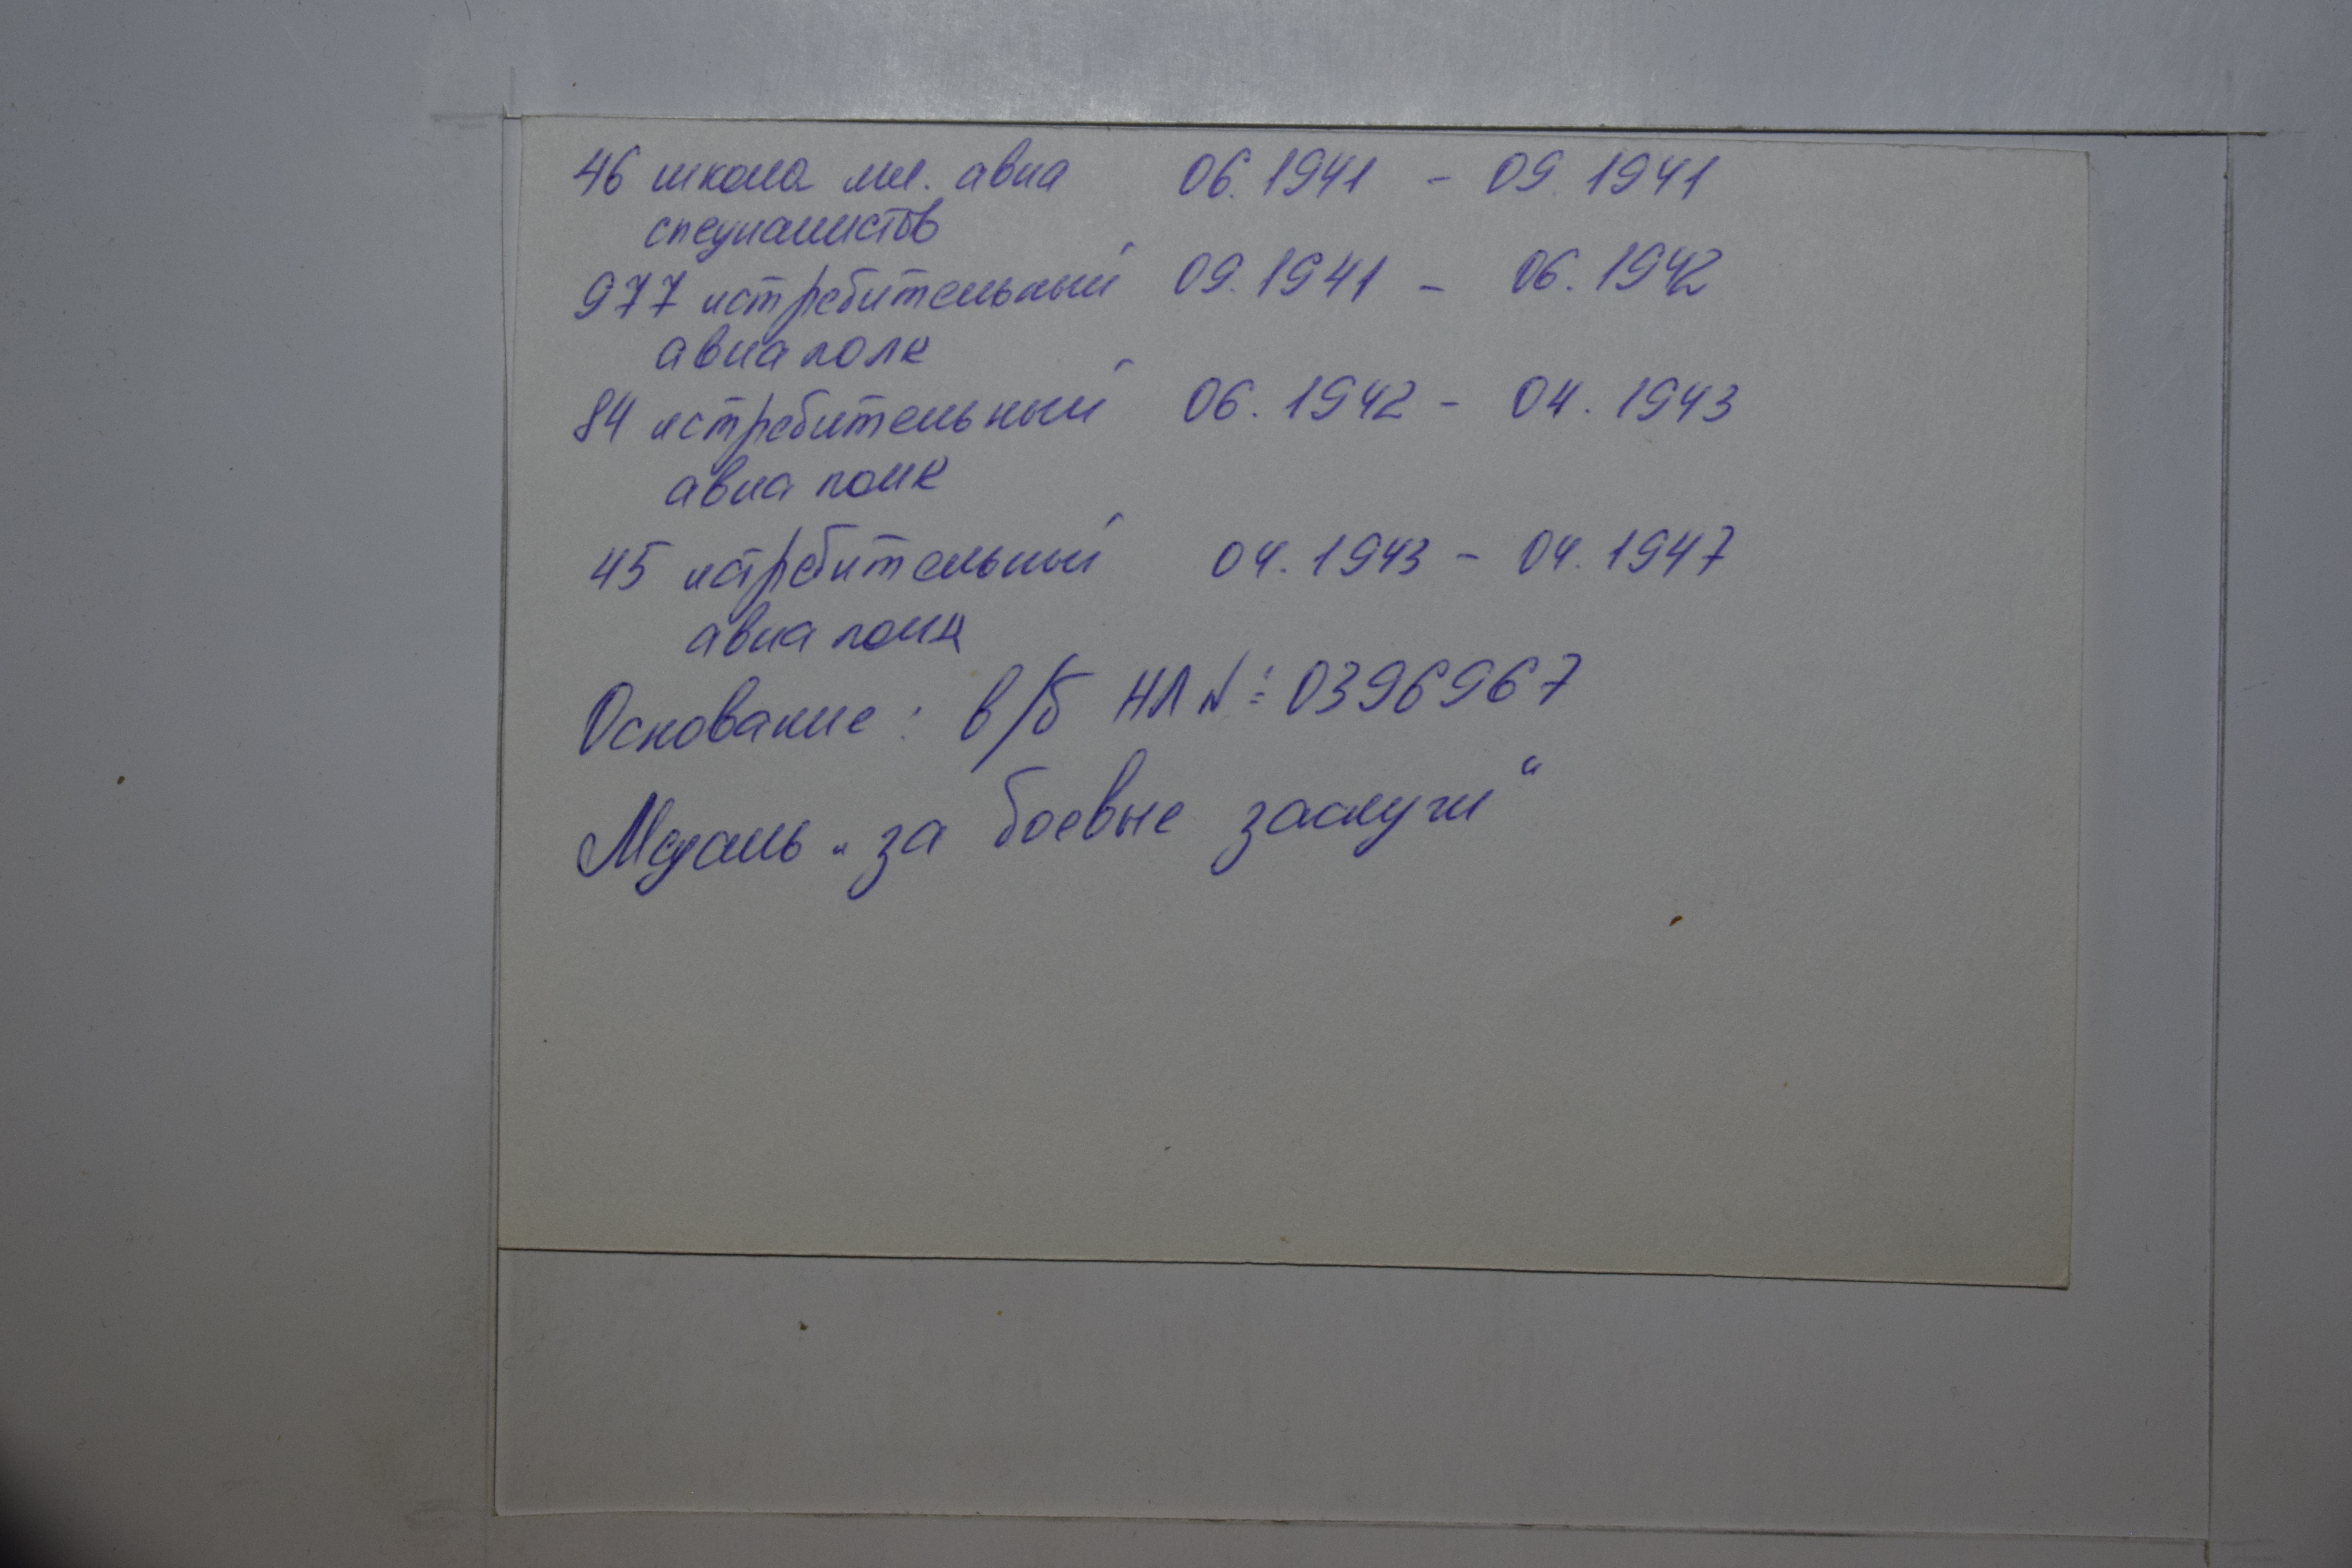 46 школа мл. авиа 06.1941 - 09.1941
специалистов
977 истребительный 09.1941 - 06.1942
авиаполк
84 истребительный 06.1942 - 04.1943
авиа полк
45 истребительный 04.1943 - 04.1947
авиа полк
Основание: в/б НЛ №: 0396967
Медаль „за боевые заслуги“